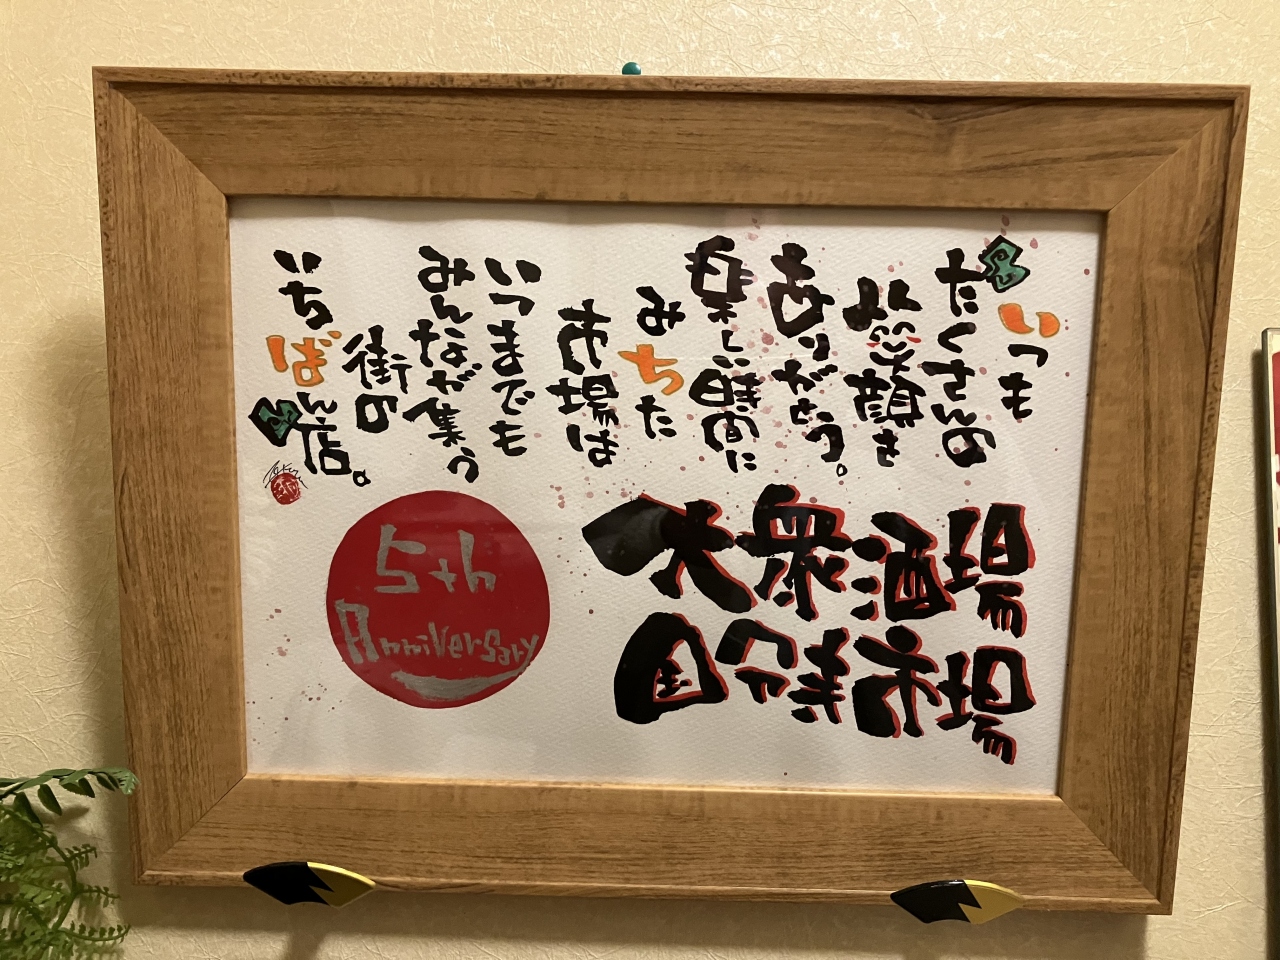 いつも
たくさんの
笑顔を
ありがとう。
楽しい時間に
みちた
市場は
いつまでも
みんなが集う
街の
いちばん店。
大衆酒場
国分寺市場
5th
Anniversary